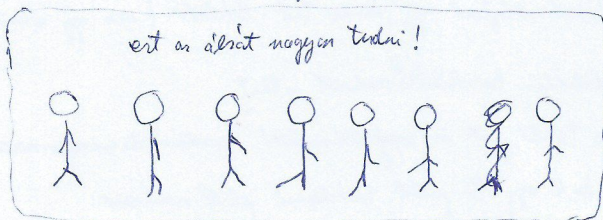 ezt az ábrát nagyon tudni!